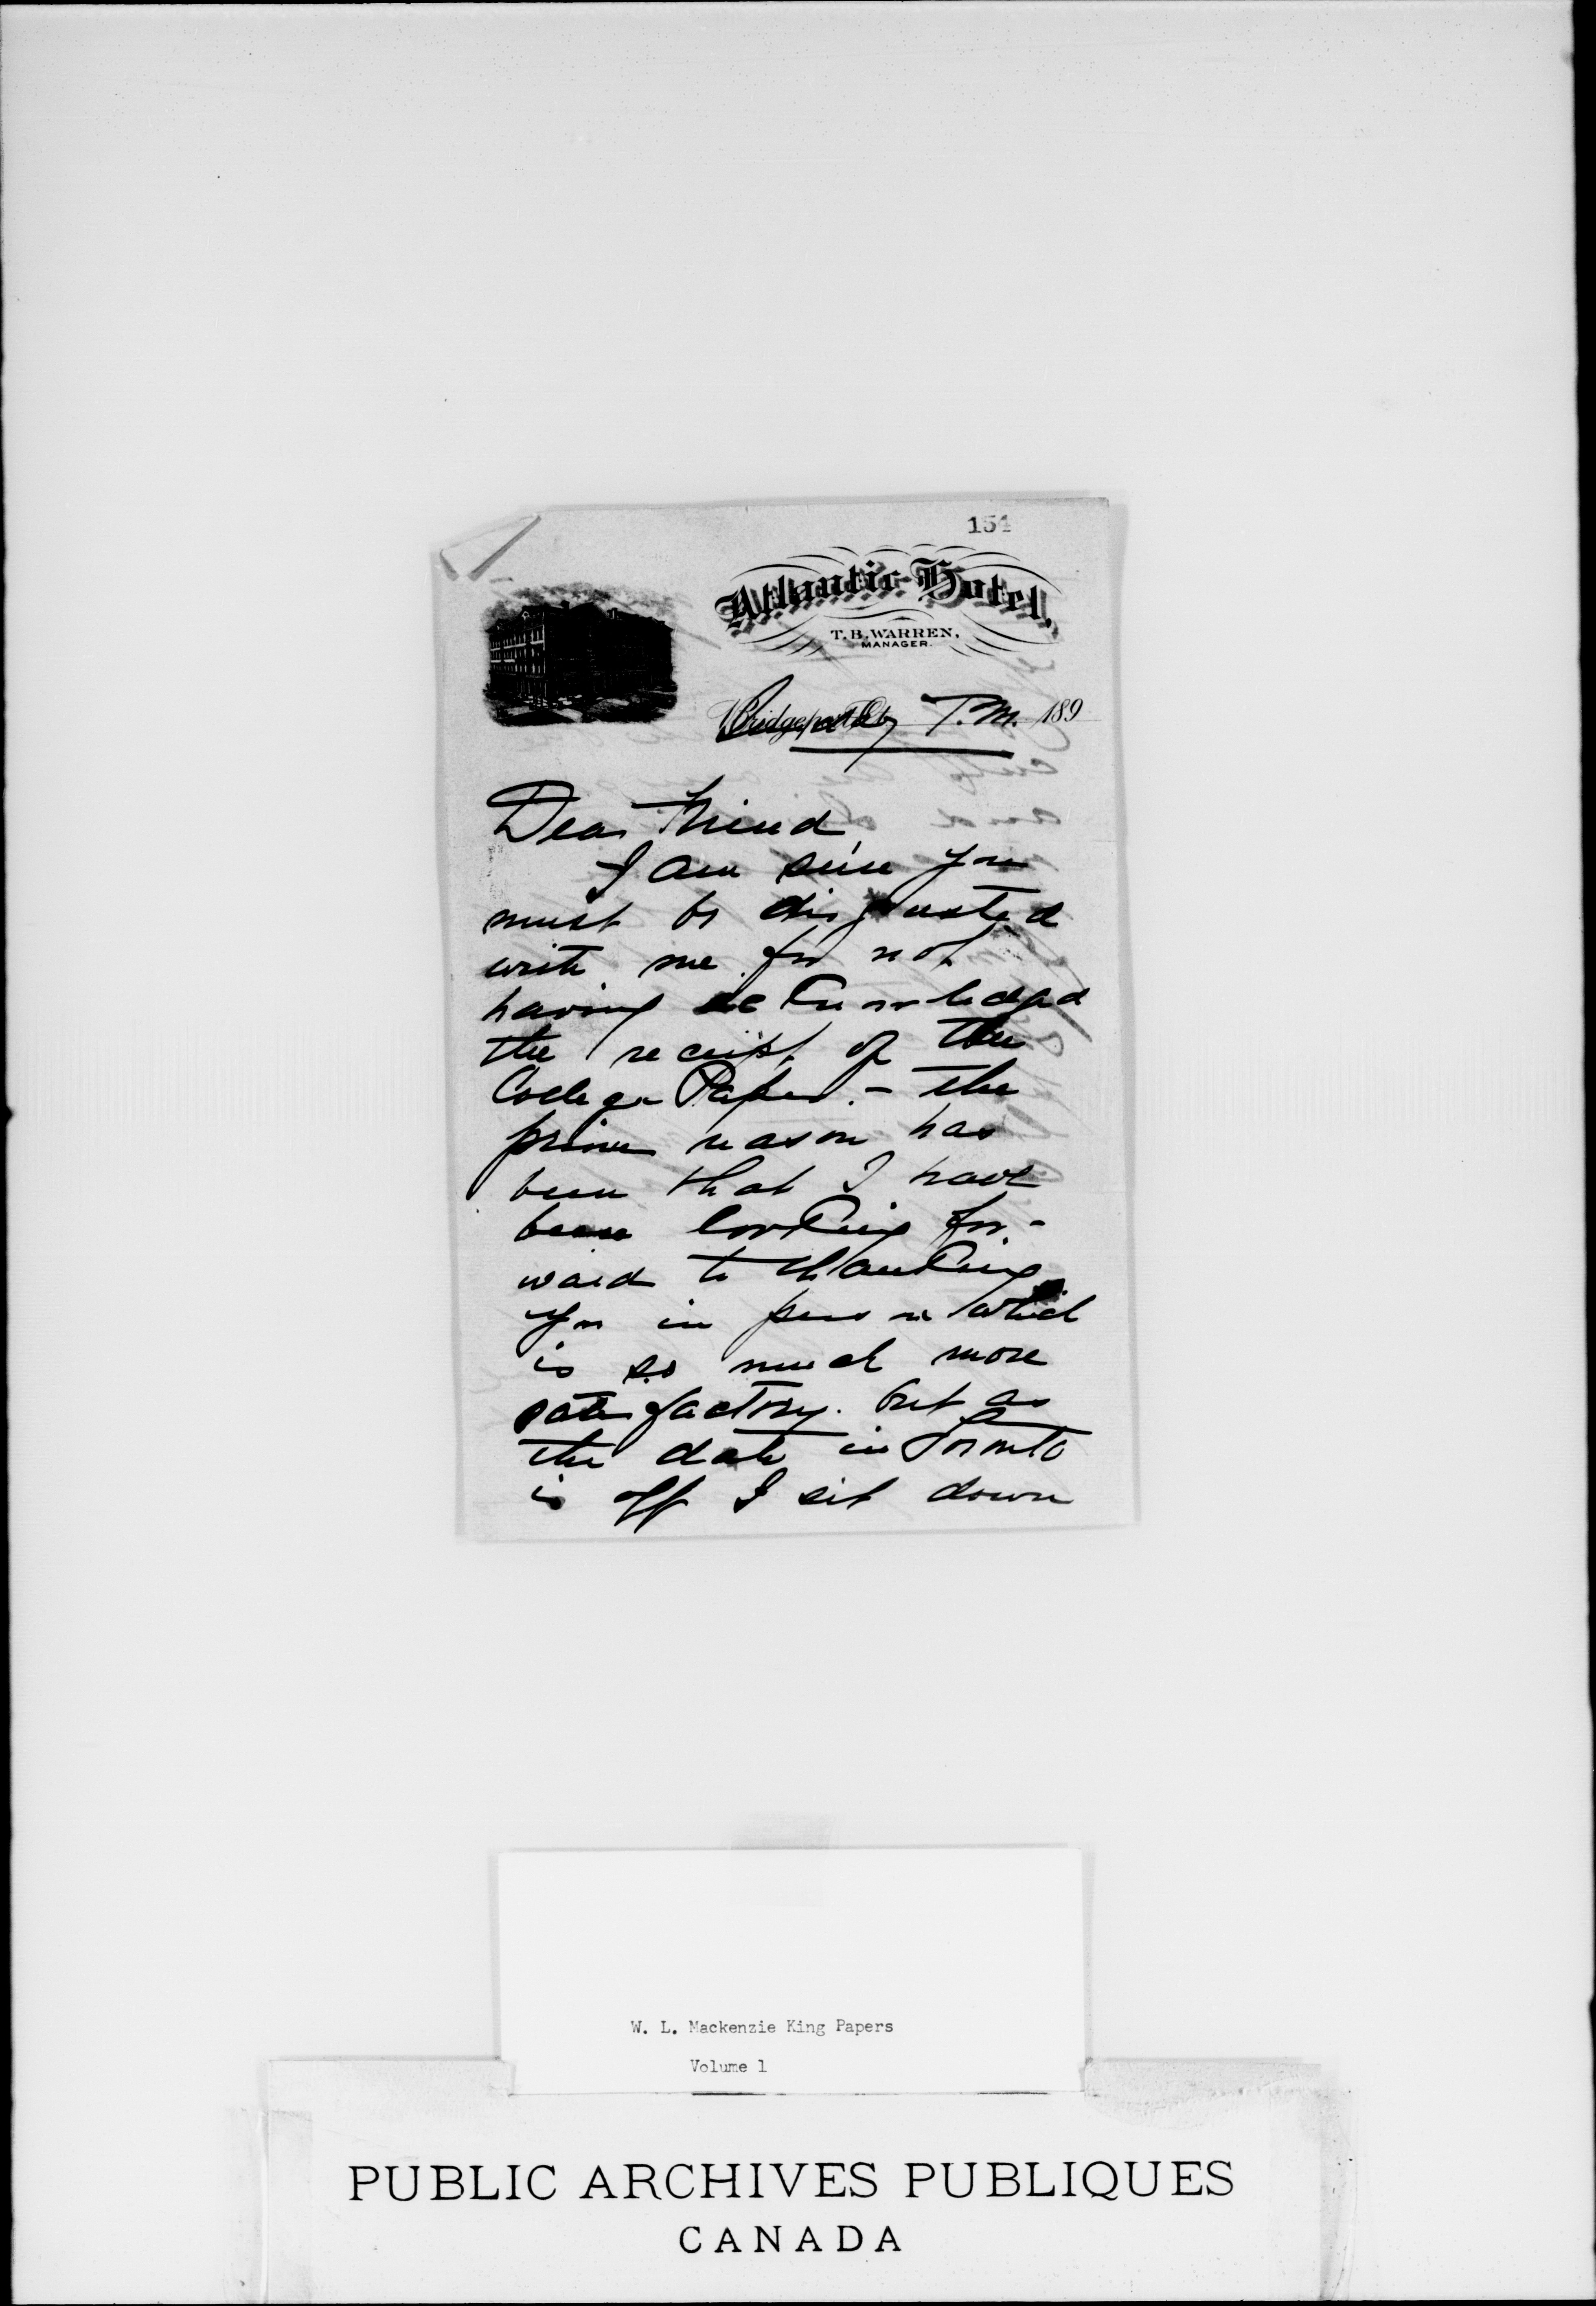 154
Atlantic Hotel,
T. B. WARREN,
MANAGER.
Bridgeport, Ct. 189
Dear Friend
I am sure you
must be disgusted
with me for not
having acknowledged
the receipt of the
College Paper. - The
prime reason has
been that I have
been looking for-
ward to thanking
you in person which
is so much more
satisfactory. but as
the date in Toronto
is off I sit down
W. L. Mackenzie King Papers
Volume 1
PUBLIC ARCHIVES PUBLIQUES
CANADA